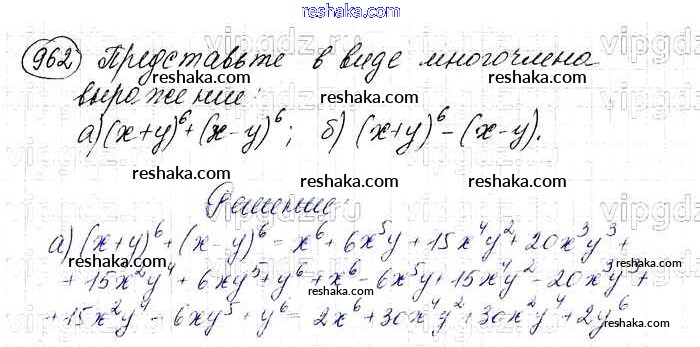 reshaka.com
962 Представьте в виде многочлена
reshaka.com reshaka.com
выражении:
reshaka.com
а) (x+y)^6+(x-y)^6; б) (x+y)^6-(x-y).
reshaka.com reshaka.com reshaka.com
Решение:
reshaka.com reshaka.com
а) (x+y)^6+(x-y)^6= x^6+6x^5y+15x^4y^2+20x^3y^3+
reshaka.com reshaka.com reshaka.com
+15x^2y^4+6xy^5+y^6+x^6-6x^5y+15x^4y^2-20x^3y^3+
reshaka.com
+15x^2y^4-6xy^5+y^6= 2x^6+30x^4y^2+30x^2y^4+2y^6
reshaka.com reshaka.com
vipgdz.ru